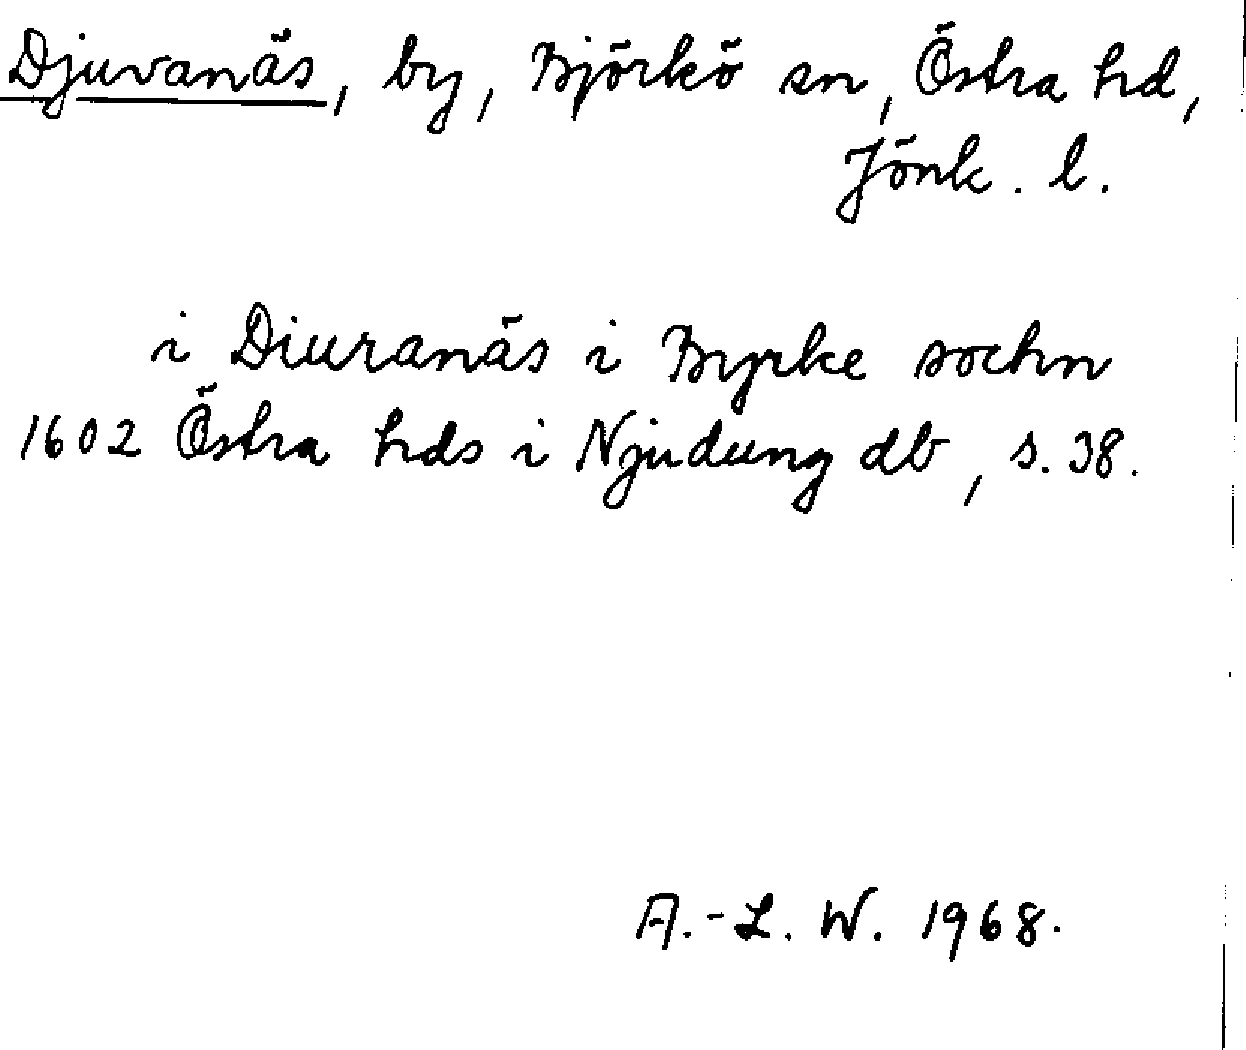 Djuvanäs, by, Björkö sn, Östra hd,
Jönk. l.
i Diuranäs i Byrke sochn
1602 Östra hds i Njudung db, s. 38.
A.-L. W. 1968.